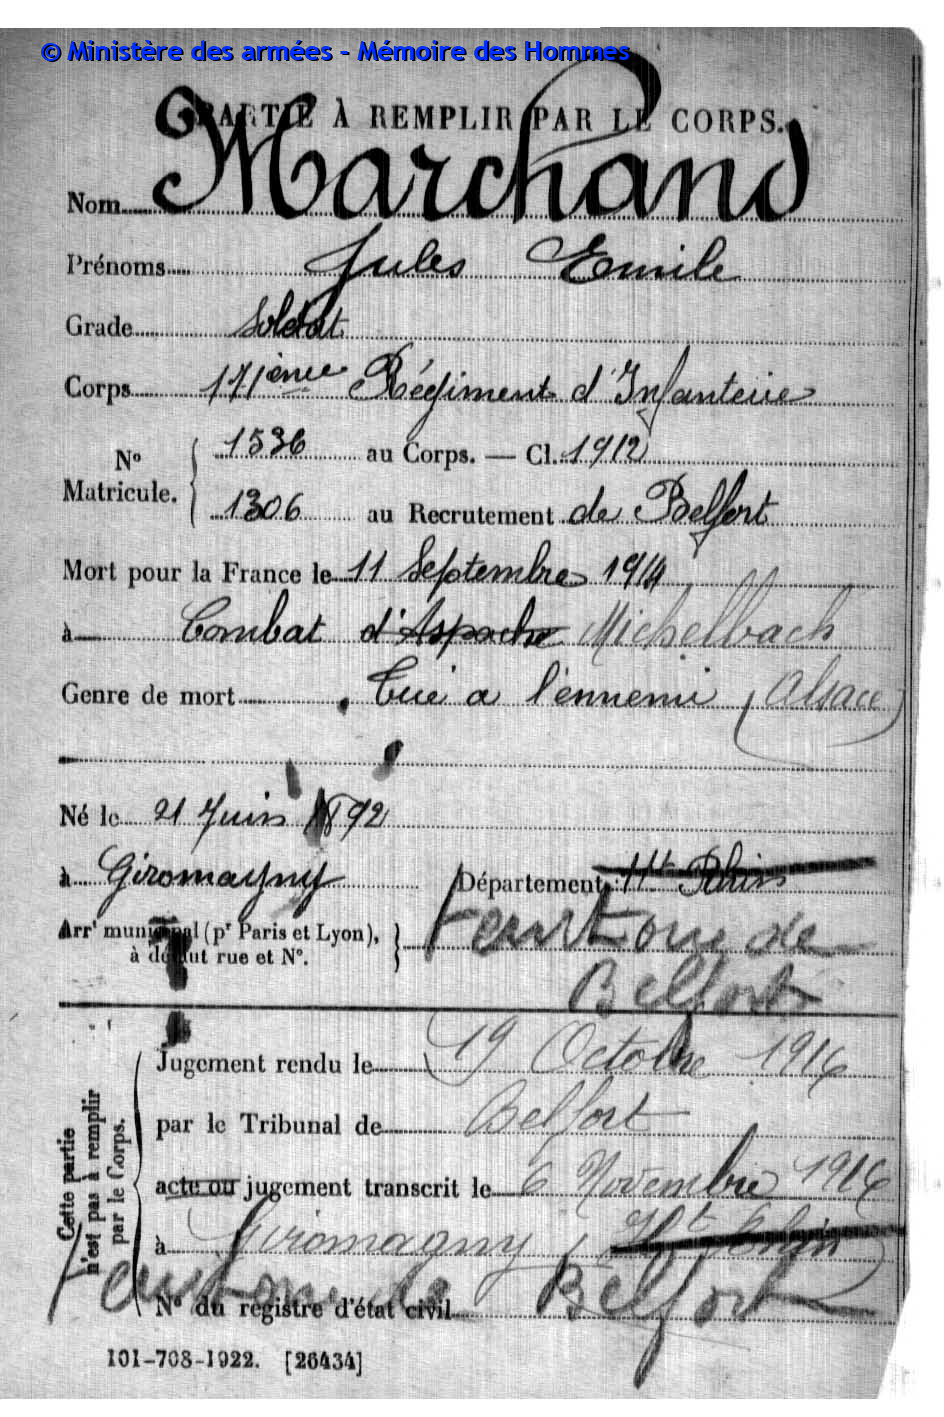 © Ministère des armées - Mémoire des Hommes
PARTIE À REMPLIR PAR LE CORPS.
Nom Marchand
Prénoms Jules Emile
Grade Soldat
Corps 171ème Régiment d'Infanterie
N° Matricule. { 1536 au Corps. — Cl. 1912
1306 au Recrutement de Belfort
Mort pour la France le 11 Septembre 1914
à Combat d'Aspache Michelbach
Genre de mort Tué a l'ennemi (Alsace)
Né le 21 Juin 1892
à Giromagny Département Ht Rhin
Arrt municipal (pr Paris et Lyon), à défaut rue et N°. } Territoire de
Belfort
Cette partie n'est pas à remplir par le Corps.
Jugement rendu le 19 Octobre 1916
par le Tribunal de Belfort
acte ou jugement transcrit le 6 Novembre 1916
à Giromagny (Ht Rhin)
Territoire de Belfort
N° du registre d'état civil
101-708-1922. [26434]